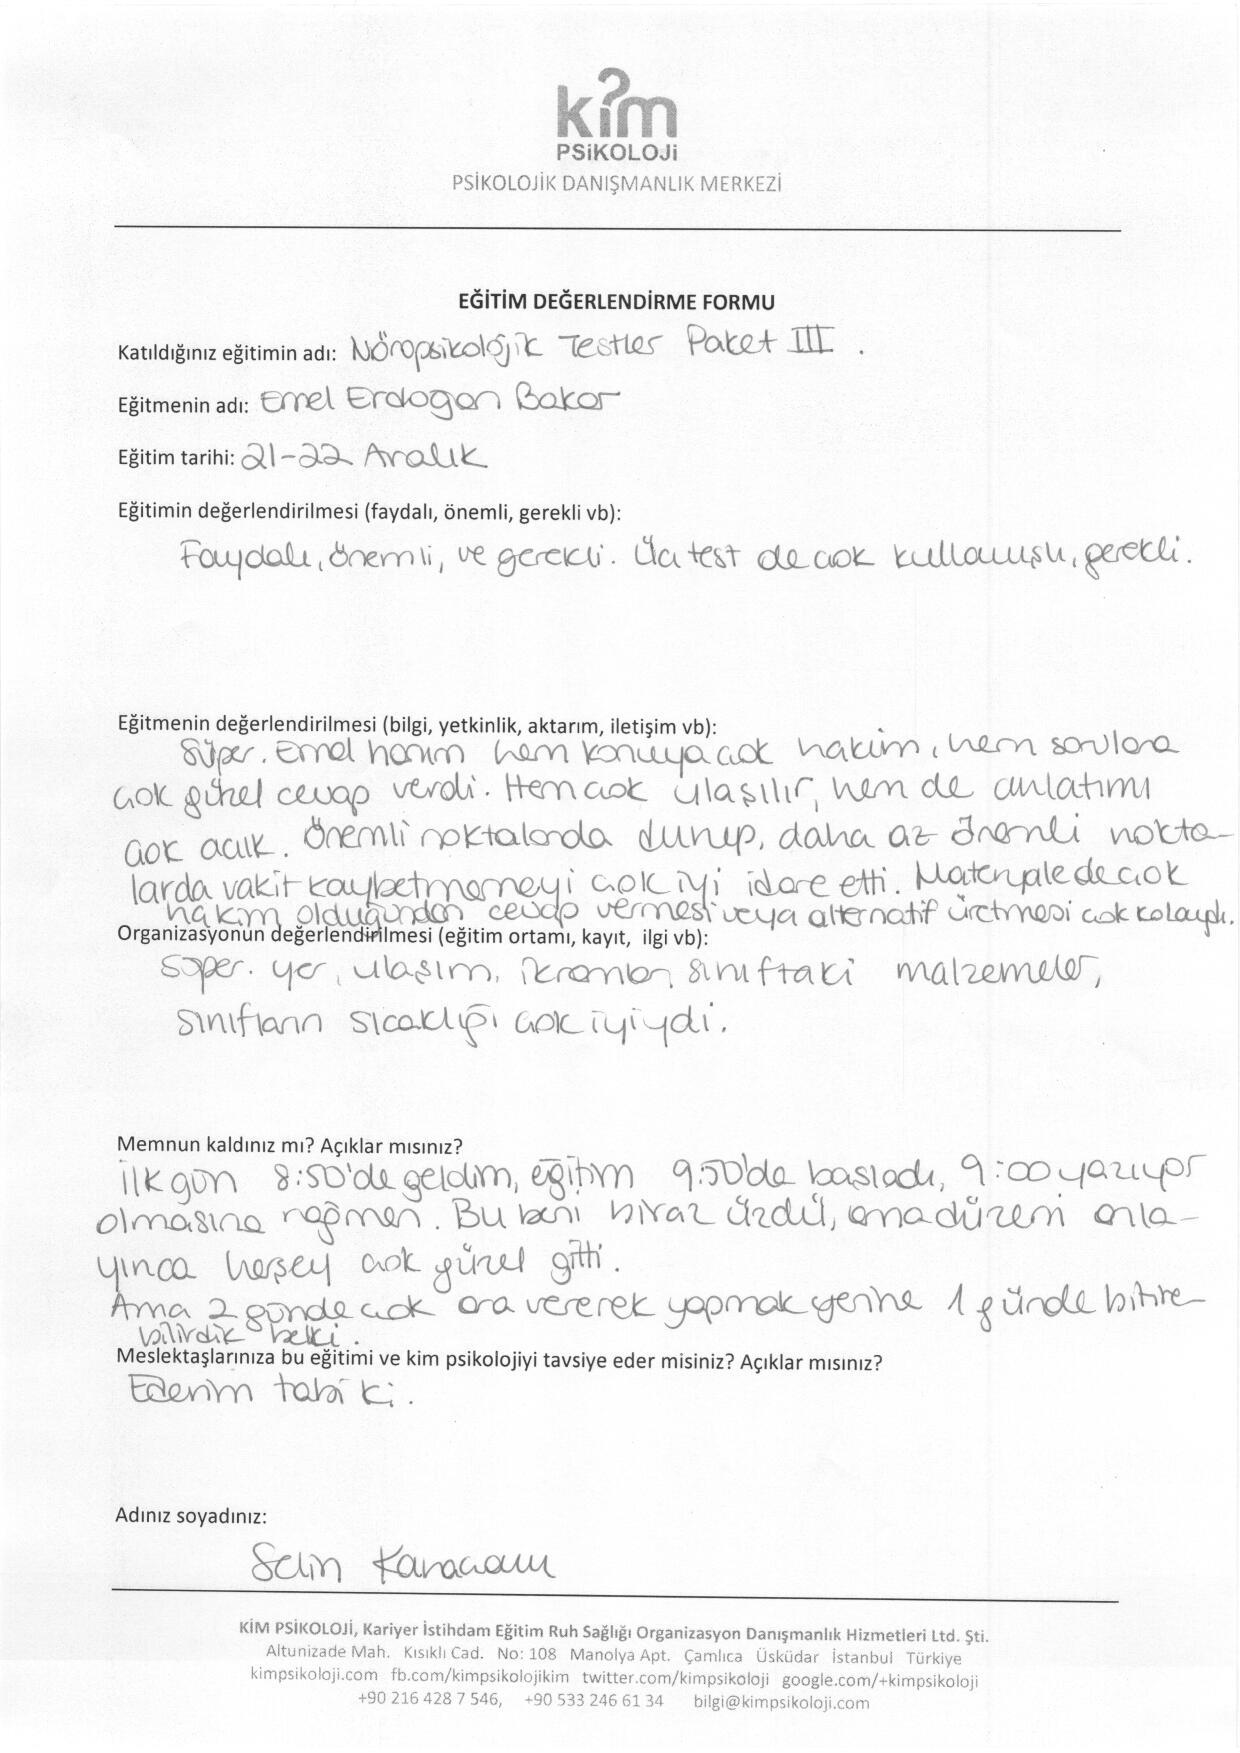 kim
PSİKOLOJİ
PSİKOLOJİK DANIŞMANLIK MERKEZİ
EĞİTİM DEĞERLENDİRME FORMU
Katıldığınız eğitimin adı: Nöropsikolojik Testler Paket III .
Eğitmenin adı: Emel Erdogan Bakar
Eğitim tarihi: 21-22 Aralık
Eğitimin değerlendirilmesi (faydalı, önemli, gerekli vb):
Faydalı, önemli, ve gerekli. Üç test de çok kullanışlı, gerekli.
Eğitmenin değerlendirilmesi (bilgi, yetkinlik, aktarım, iletişim vb):
Süper. Emel hanım hem konuya çok hakim, hem sorulara
çok güzel cevap verdi. Hem çok ulaşılır, hem de anlatımı
çok açık. Önemli noktalarda durup, daha az önemli nokta-
larda vakit kaybetmemeyi çok iyi idare etti. Materyale de çok
hakim olduğundan cevap vermesi veya alternatif üretmesi çok kolaydı.
Organizasyonun değerlendirilmesi (eğitim ortamı, kayıt, ilgi vb):
Süper. yer, ulaşım, ikramlar, sınıftaki malzemeler,
sınıfların sıcaklığı çok iyiydi.
Memnun kaldınız mı? Açıklar mısınız?
İlk gün 8:50'de geldim, eğitim 9:50'de başladı, 9:00 yazıyor
olmasına rağmen. Bu beni biraz üzdü, ama düzeni anla-
yınca herşey çok güzel gitti.
Ama 2 günde çok ara vererek yapmak yerine 1 günde bitire-
bilirdik belki.
Meslektaşlarınıza bu eğitimi ve kim psikolojiyi tavsiye eder misiniz? Açıklar mısınız?
Ederim tabi ki.
Adınız soyadınız:
Selin Karaçam
KİM PSİKOLOJİ, Kariyer İstihdam Eğitim Ruh Sağlığı Organizasyon Danışmanlık Hizmetleri Ltd. Şti.
Altunizade Mah. Kısıklı Cad. No: 108 Manolya Apt. Çamlıca Üsküdar İstanbul Türkiye
kimpsikoloji.com fb.com/kimpsikolojikim twitter.com/kimpsikoloji google.com/+kimpsikoloji
+90 216 428 7 546, +90 533 246 61 34 bilgi@kimpsikoloji.com